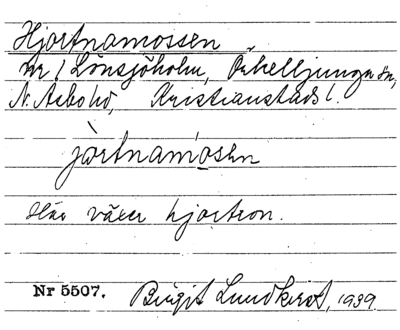 Hjortnamossen
nr 1 Lönsjöholm, Örkelljunga sn,
N. Åsbo hd, Kristianstads l.
jòrtnamósen
Här växer hjortron.
Nr 5507. Birgit Lundkvist, 1939.